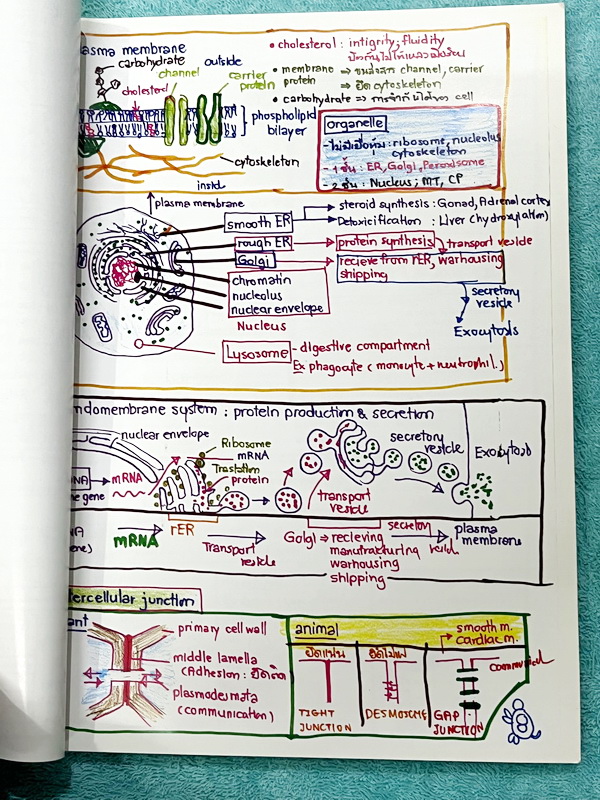 lasma membrane
carbohydrate
cholesterol
channel
outside
carrier protein
phospholipid bilayer
cytoskeleton
inside
• cholesterol : intigrity, fluidity
ป้องกันไม่ให้
• membrane protein ⇒ ขนส่งสาร channel, carrier
⇒ ยึด cytoskeleton
• carbohydrate ⇒ cell
organelle
- ไม่มีเยื่อหุ้ม : ribosome, nucleolus
cytoskeleton
- 1 ชั้น : ER, Golgi, Peroxisome
- 2 ชั้น : Nucleus ; MT, CP
plasma membrane
smooth ER
steroid synthesis : Gonad, Adrenal cortex
Detoxicification : Liver (hydroxylation)
rough ER
protein synthesis
transport vesicle
Golgi
recieve from rER, warhousing
shipping
chromatin
nucleolus
nuclear envelope
Nucleus
secretory vesicle
Exocytosis
Lysosome - digestive compartment
Ex phagocyte (monocyte + neutrophil.)
ndomembrane system : protein production & secretion
nuclear envelope
Ribosome
mRNA
Traslation
protein
secretory vesicle
Exocytosis
DNA
gene
mRNA
transport vesicle
mRNA
rER
Transport vesicle
Golgi ⇒ recieving
manufrakturing
warhousing
shipping
secretory
plasma membrane
tercellular junction
ant
primary cell wall
middle lamella
(Adhesion : ยึดติด)
plasmodesmata
(communication)
animal
smooth m.
cardiac m.
TIGHT JUNCTION
DESMOSOME
GAP JUNCTION